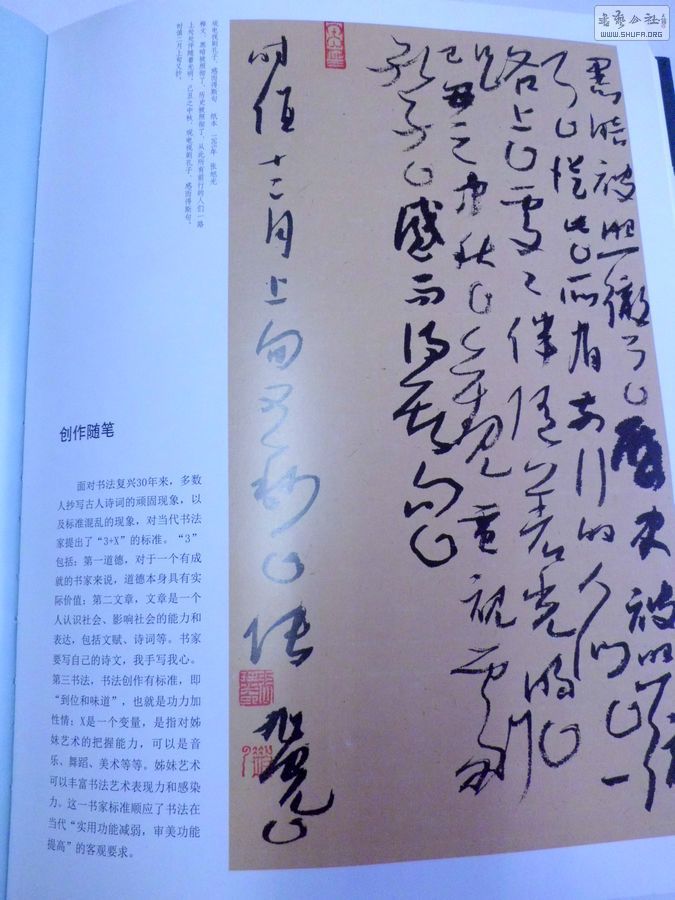 書藝公社
WWW.SHUFA.ORG
黑暗被照徹了歷史被照徹
了從此所有前行的人们一
路上處處伴随着光明
己丑之中秋觀電視劇
孔子感而得斯句
时值十二月上旬又抄張
旭光
观电视剧孔子,感而得斯句 纸本 二〇〇九年 张旭光
释文:黑暗被照彻了,历史被照彻了,从此所有前行的人们一路
上处处伴随着光明。己丑之中秋,观电视剧孔子,感而得斯句。
时值十二月上旬又抄。
创作随笔
面对书法复兴30年来,多数
人抄写古人诗词的顽固现象,以
及标准混乱的现象,对当代书法
家提出了“3+X”的标准。“3”
包括:第一道德,对于一个有成
就的书家来说,道德本身具有实
际价值;第二文章,文章是一个
人认识社会、影响社会的能力和
表达,包括文赋、诗词等。书家
要写自己的诗文,我手写我心。
第三书法,书法创作有标准,即
“到位和味道”,也就是功力加
性情;X是一个变量,是指对姊
妹艺术的把握能力,可以是音
乐、舞蹈、美术等等。姊妹艺术
可以丰富书法艺术表现力和感染
力。这一书家标准顺应了书法在
当代“实用功能减弱,审美功能
提高”的客观要求。